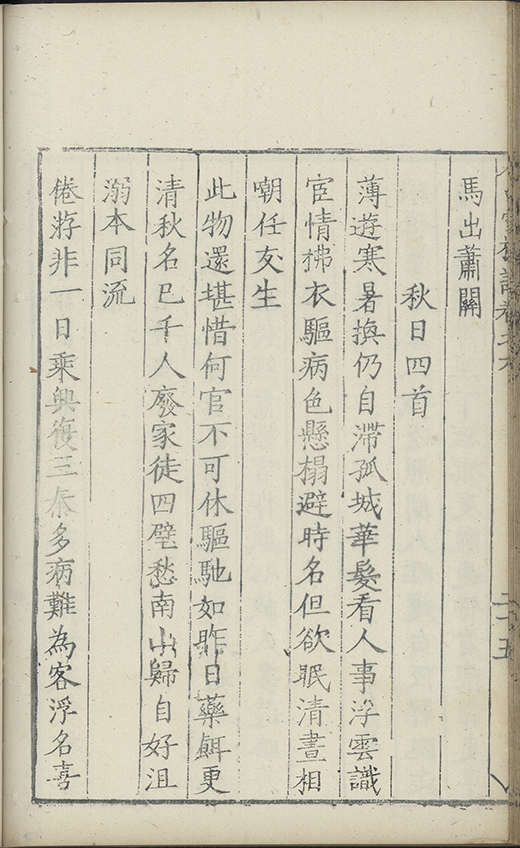 馬出蕭關
秋日四首
薄遊寒暑換仍自滯孤城華髮看人事浮雲識
宦情拂衣驅病色懸榻避時名但欲眠清晝相
嘲任友生
此物還堪惜何官不可休驅馳如昨日藥餌更
清秋名已千人廢家徒四壁愁南山歸自好沮
溺本同流
倦遊非一日乘興復三秦多病難為客浮名喜
二十五